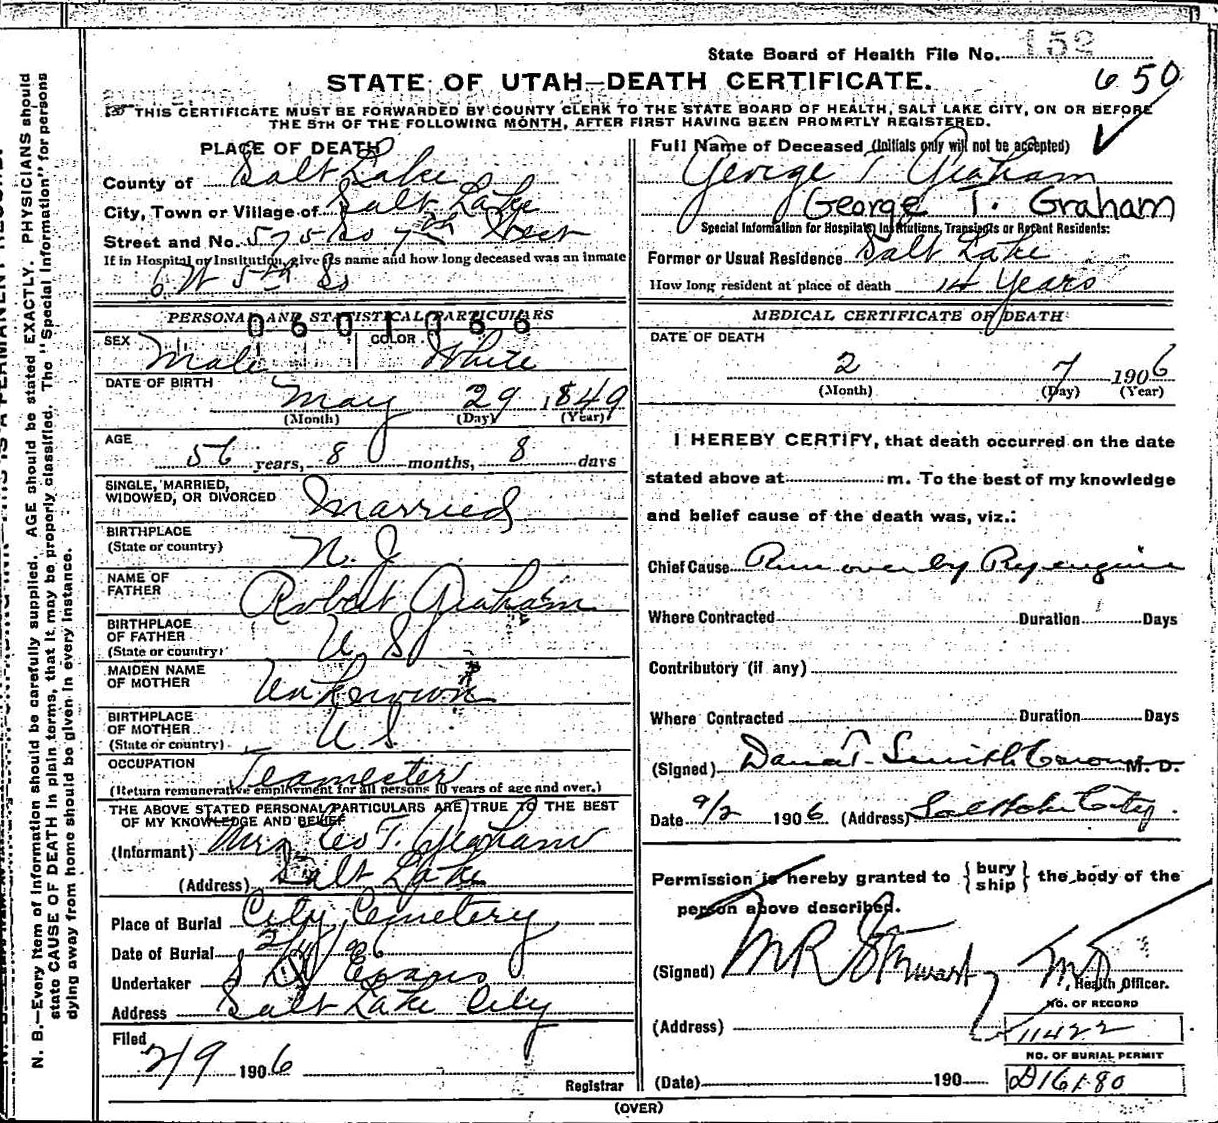 State Board of Health File No. 152
STATE OF UTAH—DEATH CERTIFICATE.
650
THIS CERTIFICATE MUST BE FORWARDED BY COUNTY CLERK TO THE STATE BOARD OF HEALTH, SALT LAKE CITY, ON OR BEFORE
THE 5TH OF THE FOLLOWING MONTH, AFTER FIRST HAVING BEEN PROMPTLY REGISTERED.
PLACE OF DEATH
County of Salt Lake
City, Town or Village of Salt Lake
Street and No. 575 So 7th West
If in Hospital or Institution, give its name and how long deceased was an inmate
6 W 5th So
PERSONAL AND STATISTICAL PARTICULARS
0601066
SEX Male COLOR White
DATE OF BIRTH May 29 1849
(Month) (Day) (Year)
AGE 56 years, 8 months, 8 days
SINGLE, MARRIED,
WIDOWED, OR DIVORCED Married
BIRTHPLACE
(State or country) N. J.
NAME OF
FATHER Robert Graham
BIRTHPLACE
OF FATHER
(State or country) U S
MAIDEN NAME
OF MOTHER Unknown
BIRTHPLACE
OF MOTHER
(State or country) U S
OCCUPATION Teamester
(Return remunerative employment for all persons 10 years of age and over.)
THE ABOVE STATED PERSONAL PARTICULARS ARE TRUE TO THE BEST
OF MY KNOWLEDGE AND BELIEF
(Informant) Mrs Geo T. Graham
(Address) Salt Lake
Place of Burial City Cemetery
Date of Burial 2/ /06
Undertaker S D Evans
Address Salt Lake City
Filed
2/9 1906
Registrar
Full Name of Deceased (Initials only will not be accepted)
George T Graham
George T. Graham
Special Information for Hospitals, Institutions, Transients or Recent Residents:
Former or Usual Residence Salt Lake
How long resident at place of death 14 Years
MEDICAL CERTIFICATE OF DEATH
DATE OF DEATH
2 7 1906
(Month) (Day) (Year)
I HEREBY CERTIFY, that death occurred on the date
stated above at m. To the best of my knowledge
and belief cause of the death was, viz.:
Chief Cause Run over by Ry engine
Where Contracted Duration Days
Contributory (if any)
Where Contracted Duration Days
(Signed) Dana T. Smith M. D.
Date 9/2 1906 (Address) Salt Lake City
Permission is hereby granted to { bury
ship } the body of the
person above described.
(Signed) M R Stewart M D
Health Officer.
NO. OF RECORD
(Address) 11422
NO. OF BURIAL PERMIT
(Date) 190 D16180
(OVER)
N. B.—Every item of information should be carefully supplied. AGE should be stated EXACTLY. PHYSICIANS should
state CAUSE OF DEATH in plain terms, that it may be properly classified. The "Special Information" for persons
dying away from home should be given in every instance.